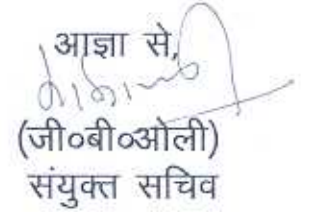 आज्ञा से,
(जी०बी०ओली)
संयुक्त सचिव